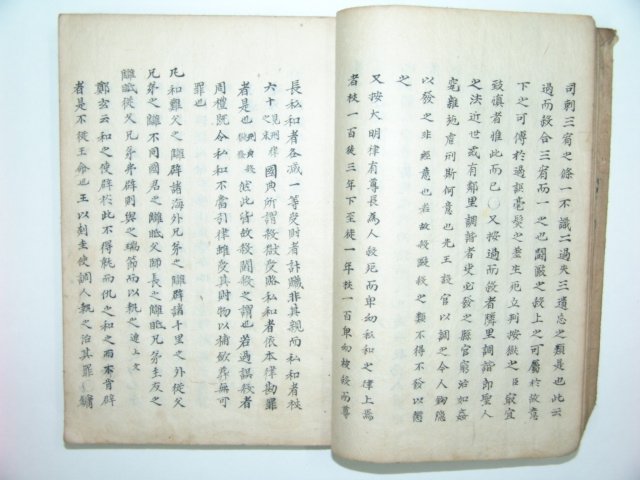 司刺三宥之條一不識二過失三遺忘之類是也此云
過而殺合三宥而一之也鬪毆之殺上之可屬於故意
下之可傅於過誤毫髮之差生死立判按獄之臣最宜
致愼者惟此而已○又按過而殺者隣里調諧卽聖人
之法近世或有鄰里調諧者吏必發之縣官窮治如姦
究離施慮刑斯何意也先王設官以調之今人鉤隱
以發之非經意也若故殺毆殺之類不得不發以償
之
又按大明律有尊長爲人殺死而卑幼私和之律上焉
者杖一百徒三年下至徒一年杖一百卑幼被殺而尊
長私和者各减一等受財者計贓非其親而私和者杖
六十見刑律之末國典所謂殺獄受賂私和者依本律勘罪
者是也見刑典然此皆故殺鬪殺之謂也若過誤殺者
周禮旣令私和不當引律雖受其財物以補斂葬無可
罪也
凡和難父之讎辟諸海外兄弟之讎辟諸千里之外從父
兄弟之讎不同國君之讎眡父師長之讎眡兄弟主友之
讎眡從父兄弟弗辟則與之瑞節而以執之連上文
鄭玄云和之使辟於此不得就而仇之和之而不肯辟
者是不從王命也王以剡圭使調人執之治其罪○鏞